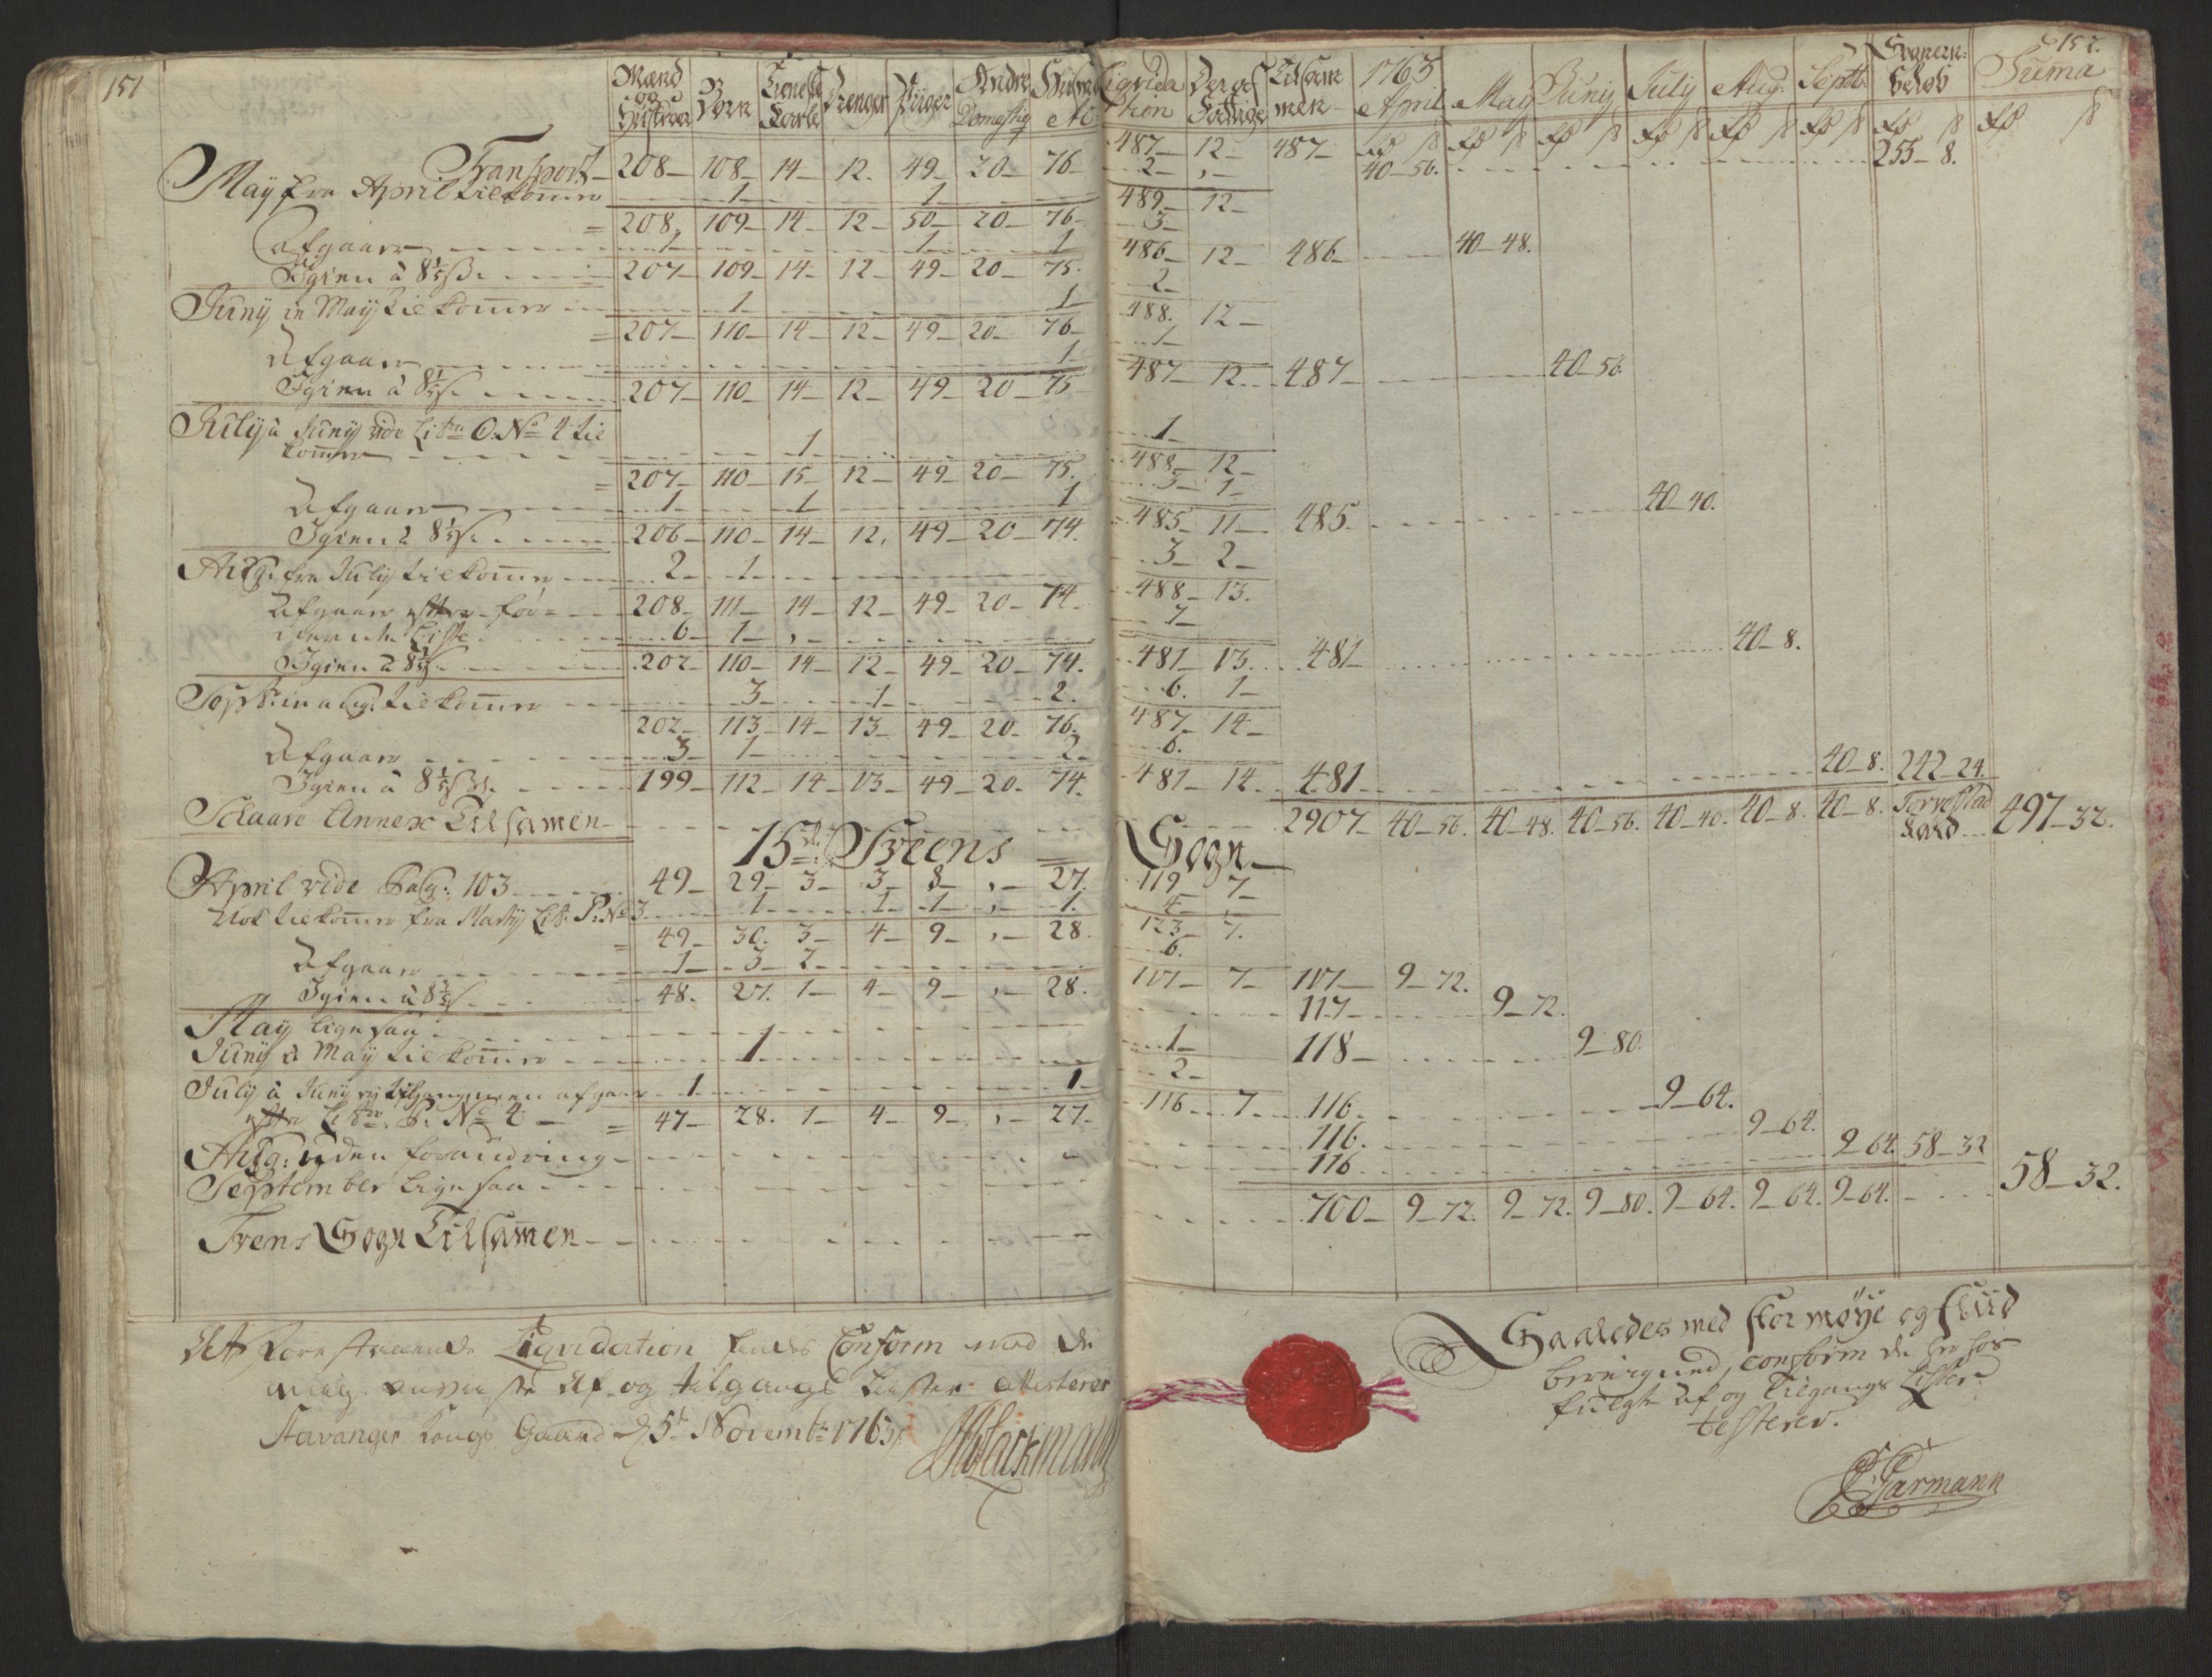 151
Mænd og Hustruer | Børn | Tieneste Karle | Drenger | Piiger | Andre Domestiq | Huusmænd
Transport - 208 - 108 - 14 - 12 - 49 - 20 - 76
May fra April tilkommer - 1 - 1
= 208 - 109 - 14 - 12 - 50 - 20 - 76
Afgaaer - 1 - 1 - 1
Igien à 8 1/3 ß - 207 - 109 - 14 - 12 - 49 - 20 - 75
Juny in May tilkommer - 1 - 1
= 207 - 110 - 14 - 12 - 49 - 20 - 76
Afgaaer - 1
Igien à 8 1/3 ß - 207 - 110 - 14 - 12 - 49 - 20 - 75
July à Juny vide Litr O: No 4 til
kommer - 1
= 207 - 110 - 15 - 12 - 49 - 20 - 75
Afgaaer - 1 - 1 - 1
Igien à 8 1/3 ß - 206 - 110 - 14 - 12 - 49 - 20 - 74
Aug: fra July tilkommer - 2 - 1
Afgaaer efter for= 208 - 111 - 14 - 12 - 49 - 20 - 74
Liste - 6 - 1
Igien à 8 1/3 ß - 202 - 110 - 14 - 12 - 49 - 20 - 74
Septr: in aug: tilkommer - 3 - 1 - 2
202 - 113 - 14 - 13 - 49 - 20 - 76
Afgaaer - 3 - 1 - 2
Igien à 8 1/3 ß - 199 - 112 - 14 - 13 - 49 - 20 - 74
Schaare Annex Tilsamen
15de Sveens
April vide Pag: 103 - 49 - 29 - 3 - 3 - 8 - , - 27
Nok tilkommer fra Marty Litr: P: No 3 - 1 - 1 - 1 - , - 1
= 49 - 30 - 3 - 4 - 9 - , - 28
Afgaaer - 1 - 3 - 2
Igien à 8 1/3 ß - 48 - 27 - 1 - 4 - 9 - , - 28
May ligesaa
Juny à May tilkommer - 1
July à Juny afgaaer - 1 - 1
efter Litr: P: No 4 = 47 - 28 - 1 - 4 - 9 - , - 27
Aug: uden forandring
September ligesaa
Svens Sogn Tilsamen
At forestaaende Liqvidation findes Conform med de
mig anviiste Af- og tilgangs Lister attesterer
Stavanger Kongs Gaard d 5t Novembr 1763
152.
Liqvidation | Der af Fattige | Tilsammen | 1763 April | May | Juny | July | Aug: | Septbr: | Sogners: Beløb | Suma
rd ß | rd ß | rd ß | rd ß | rd ß | rd ß | rd ß | rd ß
487 - 12 - 487 - 40 - 56. - 255 - 8.
2 - , -
489 - 12
3
486 - 12 - 486 - 40 - 48.
2
488 - 12
1
487 - 12 - 487 - 40 - 56
1
488 - 12
3 - 1
485 - 11 - 485 - 40 - 40.
3 - 2
488 - 13.
7
481 - 13 - 481 - 40 - 8.
6. - 1
487 - 14
6.
481 - 14 - 481 - 40 - 8. - 242 - 24.
2907 - 40 - 56. - 40 - 48. - 40 - 56. - 40 - 40. - 40 - 8. - 40 - 8. - Torvestad - 497 - 32.
Sogn
119 - 7
4
123 - 7.
6.
117 - 7 - 117 - 9 - 72.
117 - 9 - 72.
1 - 118 - 9 - 80.
2
116 - 7 - 116 - 9 - 64.
116. - 9 - 64.
116 - 9 64 - 58 - 32
700 - 9 - 72. - 9 - 72. - 9 - 80. - 9 - 64. - 9 - 64. - 9 - 64. - 58 - 32.
Saaledes med stor møye og fliid
conform de her hos
fuldgte af og tilgangs Lister
testerer.
Garmann